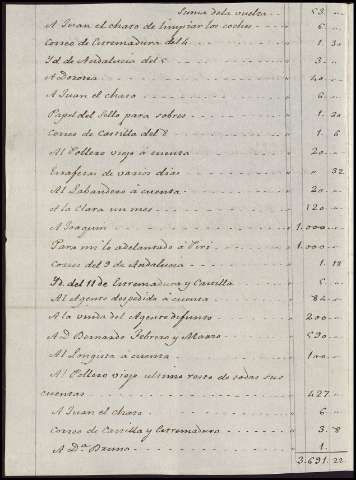 Suma de la vuelta " 53. "
A Juan el charo de limpiar los coches " 6. "
Correo de Extremadura del 4 " 1. 30
Yd. de Andalucia del 5 " 3. "
A Dorotea " 40. "
A Juan el charo " 6. "
Papel del sello para sobres " 1. 20
Correo de Castilla del 8 " 1. 6
Al Pollero viejo á cuenta " 20. "
Estafetas de varios dias " " 32
Al Labandero á cuenta " 20. "
A la Clara un mes " 120 "
A Joaquin " 1.000. "
Para mi lo adelantado á " 1.000. "
Correo del 9 de Andalucia " 1. 18
Yd. del 11 de Extremadura y Castilla " 5. "
Al Agente despedido á cuenta " 84. "
A la viuda del Agente difunto " 200. "
A D. Bernardo Febrero y Marzo " 590. "
Al Longista á cuenta " 100. "
Al Pollero viejo ultimo resto de todas sus
cuentas " 427. "
A Juan el charo " 6. "
Correo de Castilla y Extremadura " 3. 8
A Dn. Bruno " 1. "
3.691. 22